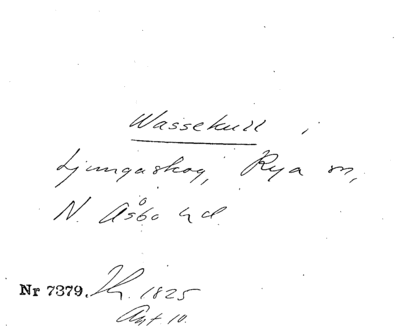 Wassekull i
Ljungaskog, Rya sn,
N. Åsbo hd.
Nr 7379. Th. 1825
Ant. 10.